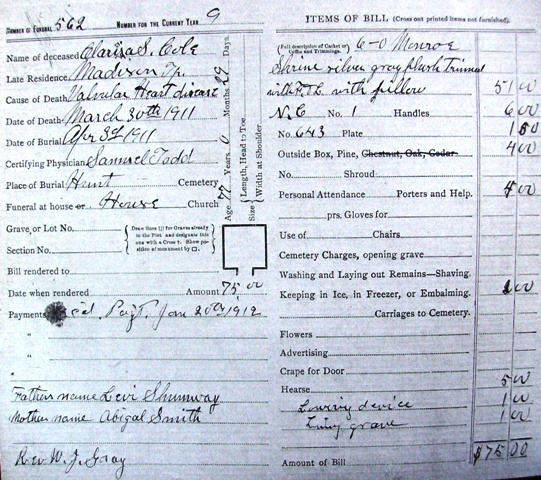 NUMBER OF FUNERAL 562 NUMBER FOR THE CURRENT YEAR 9
Name of deceased Clarisa S. Cole
Late Residence Madison Tp.
Cause of Death Valvular Heart disease
Date of Death March 30th 1911
Date of Burial Apr 3d 1911
Certifying Physician Samuel Todd
Place of Burial Hunt Cemetery
Funeral at house or House Church
Age 77 Years 0 Months 29 Days
Size Length, Head to Toe
Width at Shoulder
Grave or Lot No.
Section No.
Draw lines for Graves already in the Plot and designate this one with a Cross †. Show position of monument by □.
Bill rendered to
Date when rendered Amount 75.00
Payments Rec'd. Payt. Jan 20th 1912
"
"
"
Fathers name Levi Shumway
Mother name Abigal Smith
Rev W. J. Gray
ITEMS OF BILL (Cross out printed items not furnished).
(Full description of Casket or Coffin and Trimmings. 6-0 Monroe
Shrine silver gray plush trimed
with pillow 51 00
No. 1 Handles 6 00
No. 643 Plate 1 50
Outside Box, Pine, Chestnut, Oak, Cedar 4 00
No. Shroud
Personal Attendance Porters and Help.
prs. Gloves for
Use of Chairs
Cemetery Charges, opening grave
Washing and Laying out Remains—Shaving.
Keeping in Ice, in Freezer, or Embalming.
Carriages to Cemetery.
Flowers
Advertising
Crape for Door
Hearse 5 00
Lowring device 1 00
Lining grave 1 00
Amount of Bill $75 00